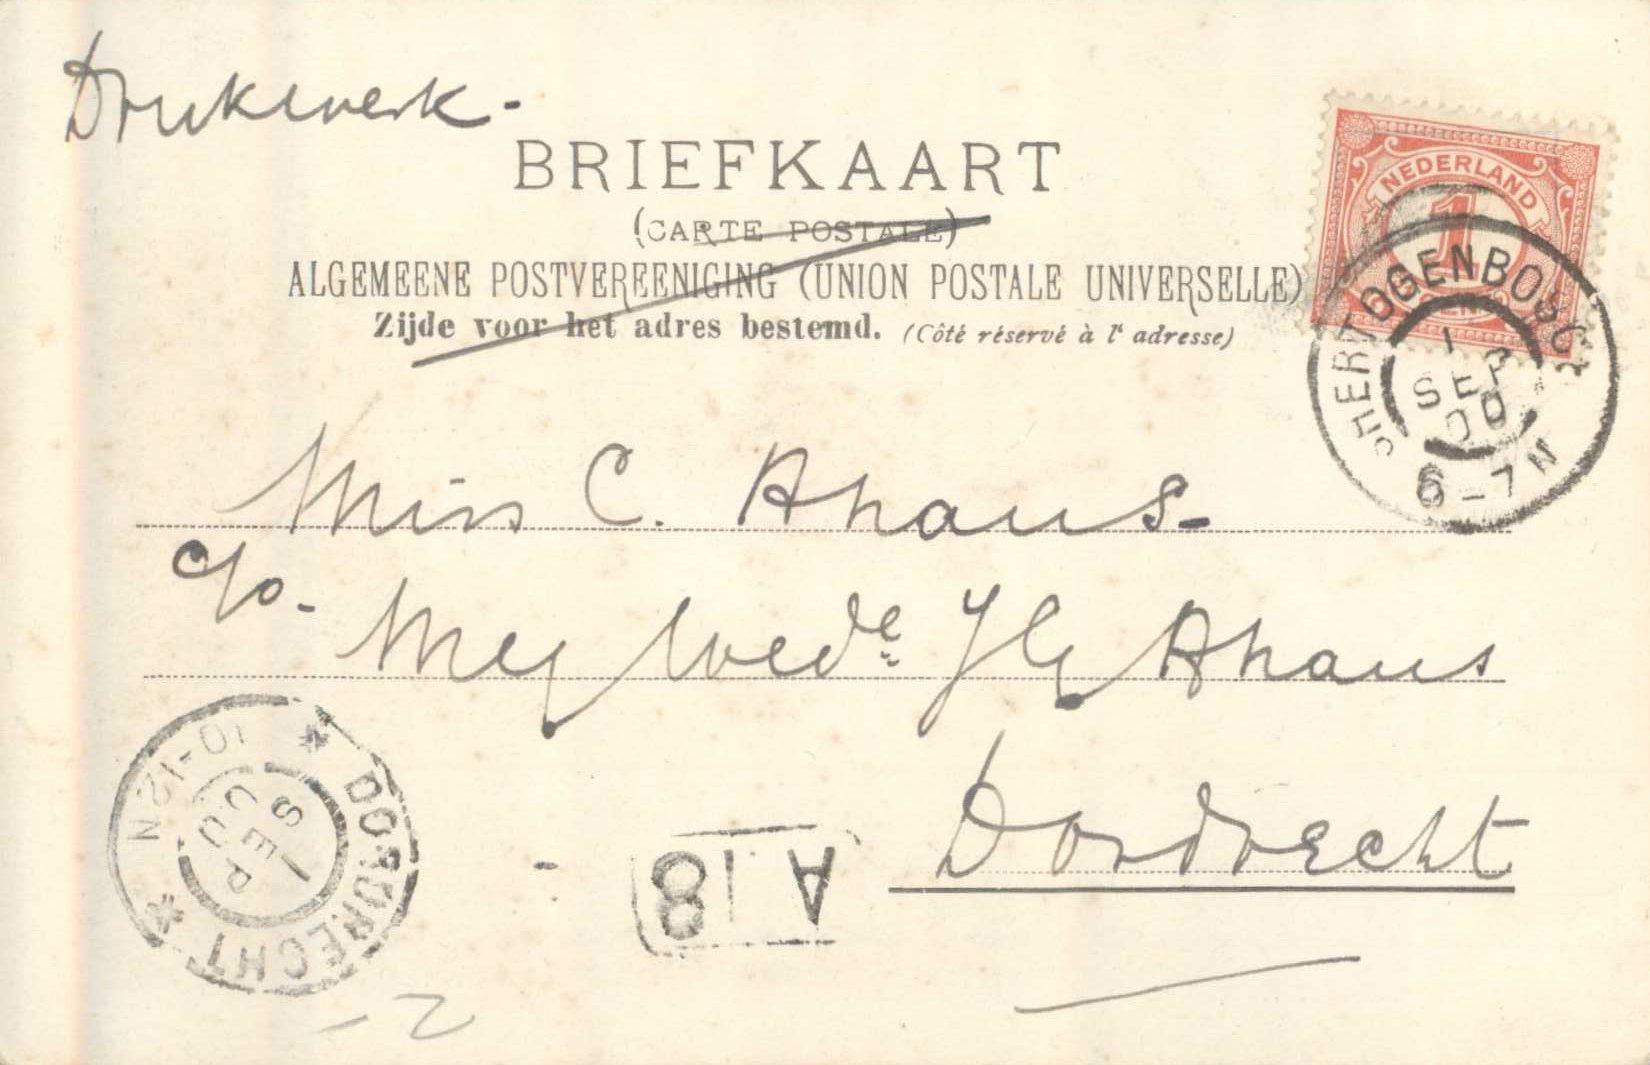 Drukwerk-
BRIEFKAART
(CARTE POSTALE)
ALGEMEENE POSTVEREENIGING (UNION POSTALE UNIVERSELLE)
Zijde voor het adres bestemd. (Côté réservé à l' adresse)
NEDERLAND
1
CENT
'SHERTOGENBOSCH
1
SEP
00
6-7N
Miss C. Ahaus-
c/o- Mej Wedᵉ J G Ahaus
Dordrecht
DORDRECHT
10-12N
1
SEP
00
A 18